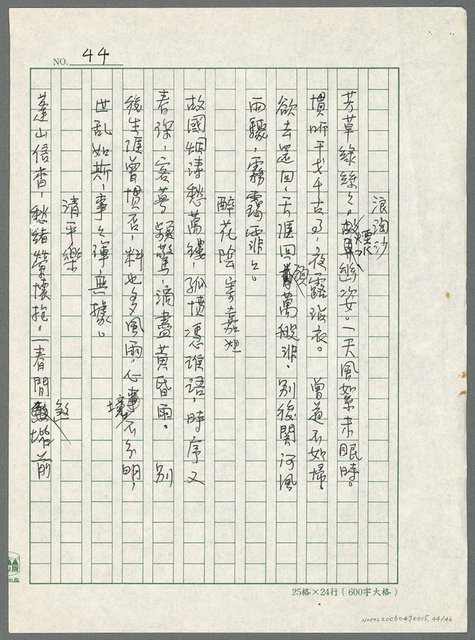 NO. 44
浪淘沙
芳草綠絲絲。飄幽姿。一天風絮未眠時。
慣聽子戈千古, 夜露沾衣。 曾道不如歸。
欲去還回。天涯回顧萬般非。別後關河風
雨驟,霧靄霏霏。
醉花陰 寄嘉
故國烟濤愁萬縷。孤憤憑誰語,時序又
春深,客夢頻驚,淚盡黃昏雨。 別
後生涯曾慣否,料也多風雨。心境不分明,
世亂如斯,事事渾無據。
清平樂
蓬山信杳。愁緒縈懷抱。一春閒煞階前
25格×24行(600字大格)
NMTL20060470015, 44/46